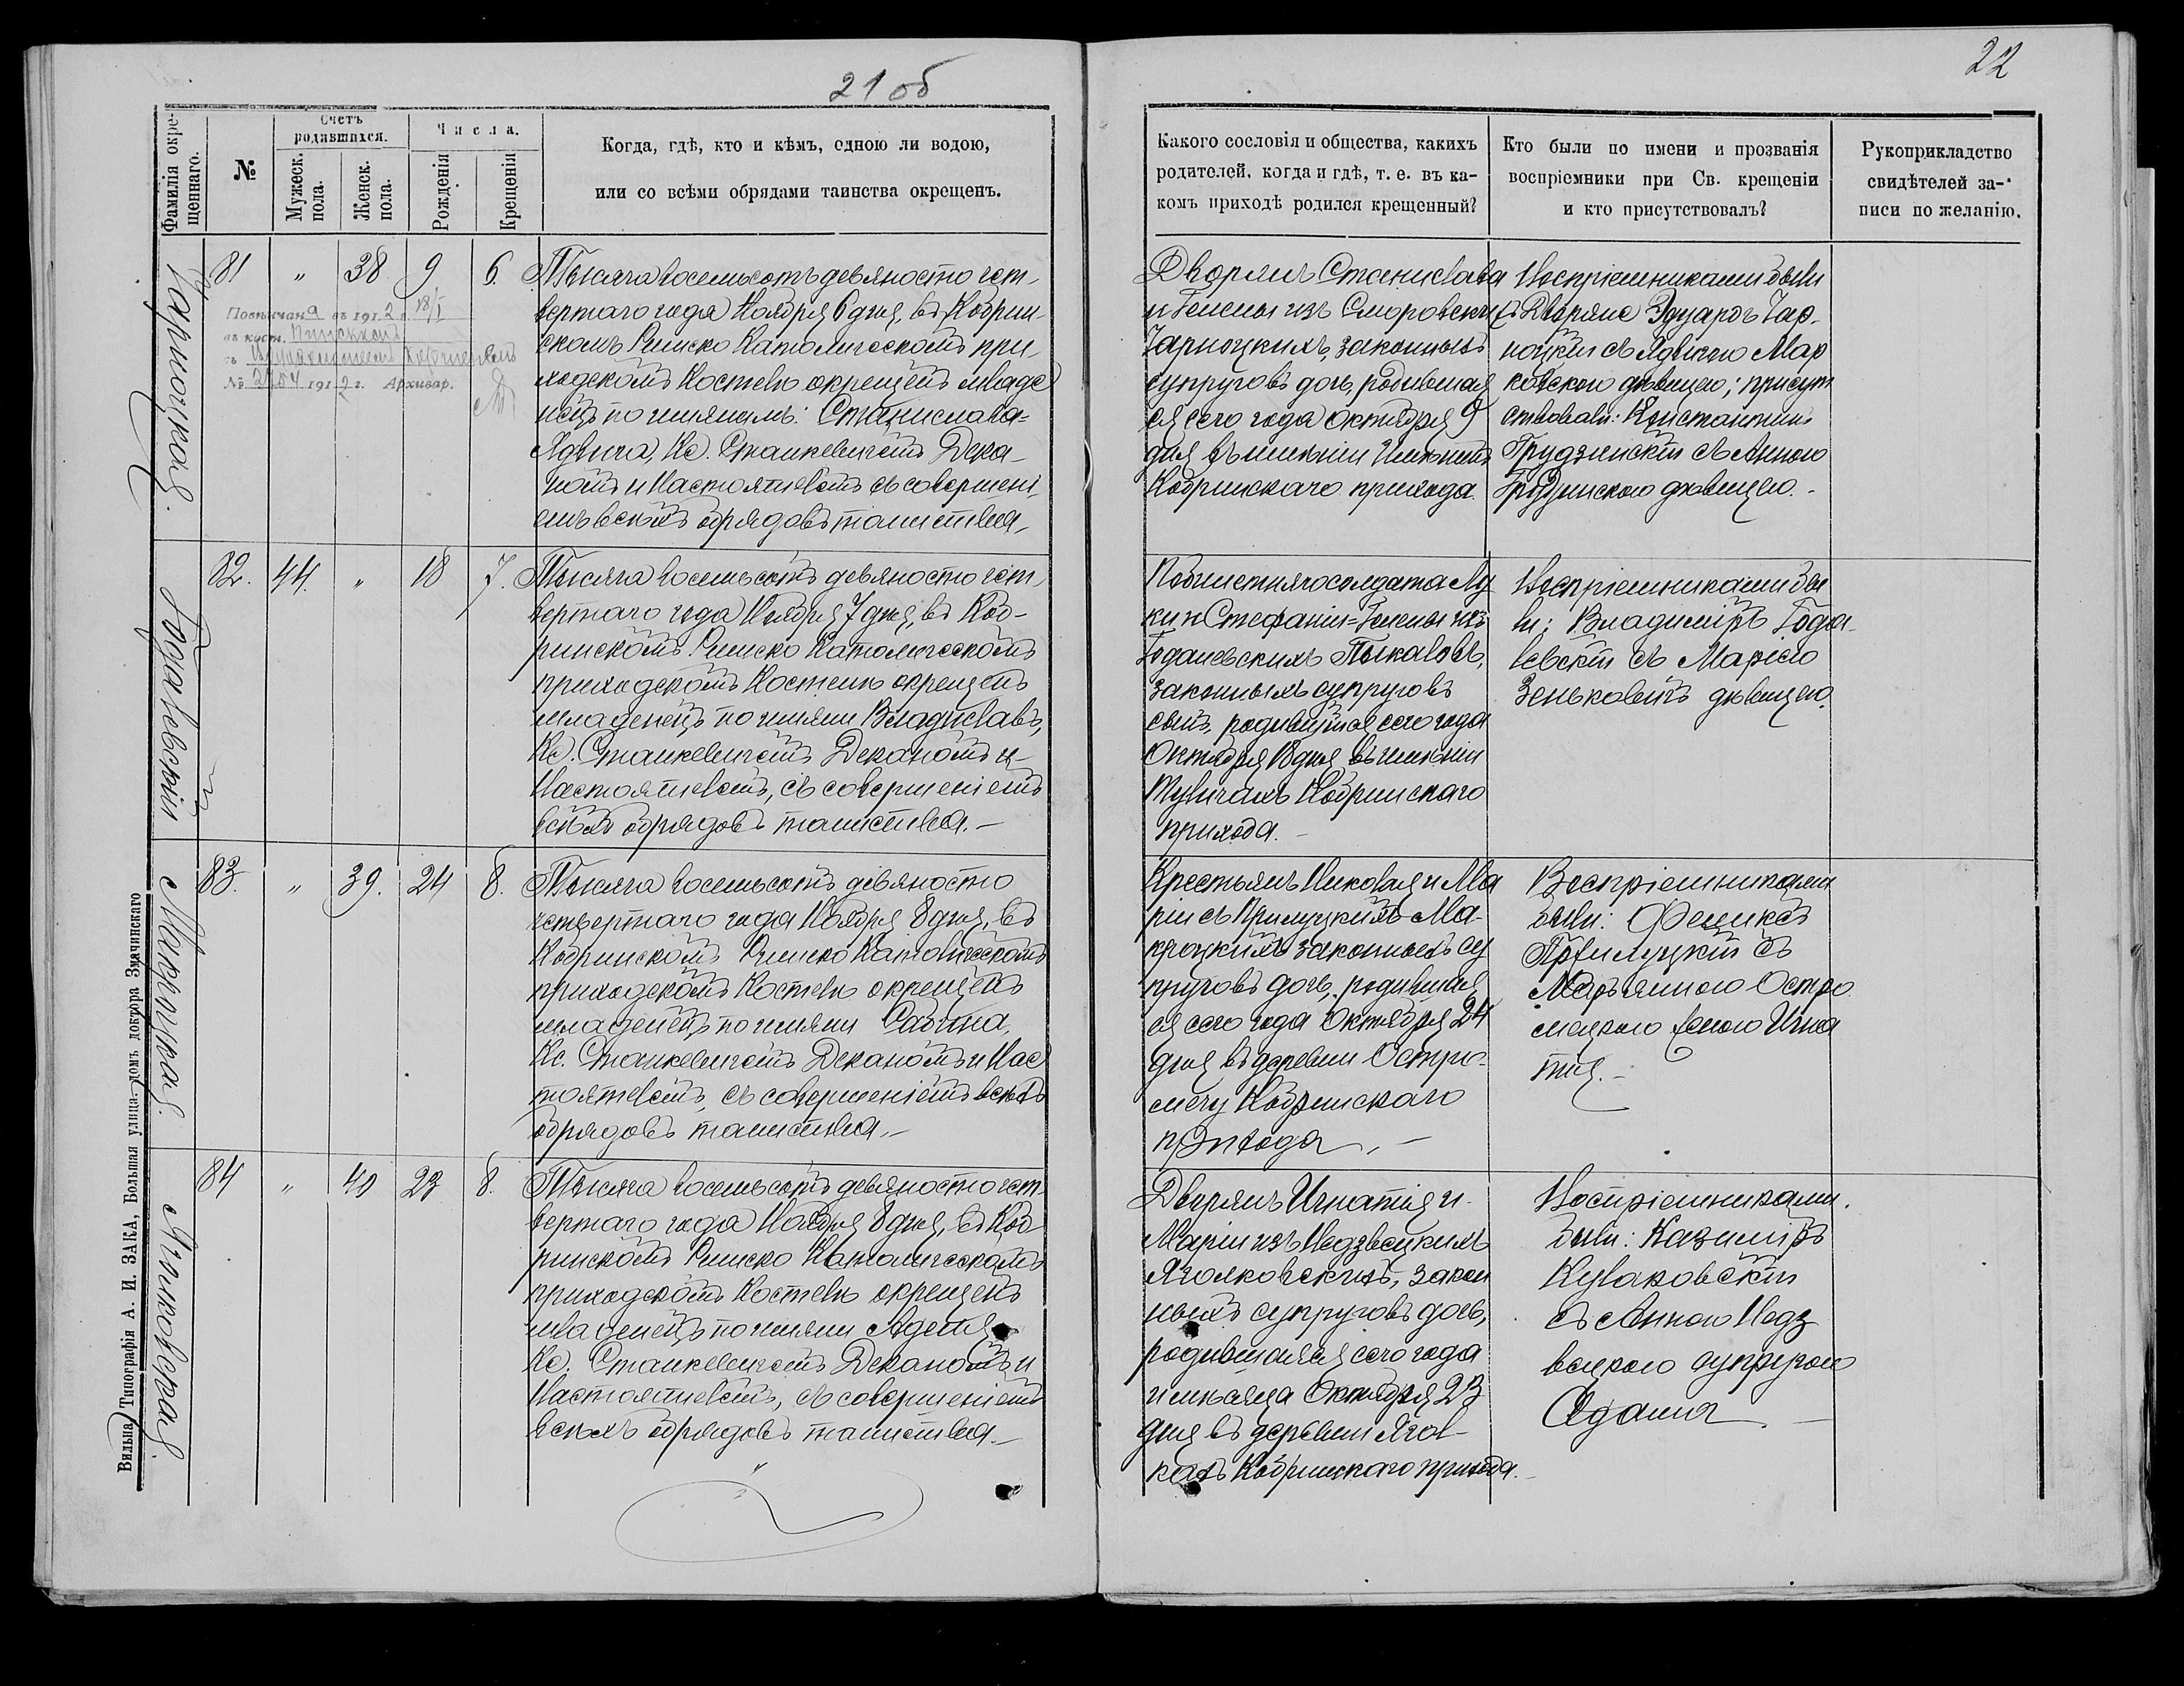 21 об
22
Фамилія окре-
щеннаго.
№
Счетъ
родившихся.
Мужеск.
пола.
Женск.
пола.
Числа.
Рожденія
Крещенія
Когда, гдѣ, кто и кѣмъ, одною ли водою,
или со всѣми обрядами таинства окрещенъ.
Какого сословія и общества, какихъ
родителей, когда и гдѣ, т. е. въ ка-
комъ приходѣ родился крещенный?
Кто были по имени и прозванія
воспріемники при Св. крещеніи
и кто присутствовалъ?
Рукоприкладство
свидѣтелей за-
писи по желанію.
Чарноцкая.
81 " 38 9 6.
Повѣнчана въ 191.2 г. 18/I
въ кост. Пинскомъ
съ
№ 191 2 г. Архивар.
Тысяча восемьсотъ девяносто чет-
вертаго года Ноября 6 дня, въ Кобрин-
скомъ Римско Католическомъ при-
ходскомъ Костелѣ окрещенъ младе
нецъ по имянамъ: Станислава-
Ядвига, Кс. Станкевичемъ Дека-
номъ и Настоятелемъ съ совершені-
емъ всѣхъ обрядовъ таинства.
Дворянъ Станислава
и Гелены изъ Сморовскихъ
Чарноцкихъ, законныхъ
супруговъ дочь, родившая
ся сего года Октября 9
дня въ имѣніи
Кобринскаго прихода
Воспріемниками были
Дворяне Эдуардъ Чар-
ноцкій съ Ядвигою Мар
ковскою дѣвицею; присут
ствовали: Константинъ
Грудзинскій съ Анною
Грудзинскою дѣвицею.-
82. 44. " 18 7.
Тысяча восемьсотъ девяносто чет-
вертаго года Ноября 7 дня, въ Коб-
ринскомъ Римско Католическомъ
приходскомъ Костелѣ окрещенъ
младенецъ по имяни Владиславъ,
Кс. Станкевичемъ Деканомъ и
Настоятелемъ, съ совершеніемъ
всѣхъ обрядовъ таинства.-
солдата
и Стефаніи-Гелены изъ
законныхъ супруговъ
сынъ, родившійся сего года
Октября 18 дня въ имѣніи
Кобринскаго
прихода.-
Воспріемниками бы
ли: Владиміръ
съ Маріею
Зеньковичъ дѣвицею.
Макроцкая.
83. " 39. 24 8.
Тысяча восемьсотъ девяносто
четвертаго года Ноября 8 дня, въ
Кобринскомъ Римско Католическомъ
приходскомъ Костелѣ окрещенъ
младенецъ по имяни Сабина,
Кс. Станкевичемъ Деканомъ и Нас
тоятелемъ, съ совершеніемъ всѣхъ
обрядовъ таинства.-
Крестьянъ Николая и Ма
ріи съ Прилуцкихъ Ма-
кроцкихъ законныхъ су
пруговъ дочь, родившая
ся сего года Октября 24
дня въ деревни Остро-
мечу Кобринскаго
прихода.-
Воспріемниками
были: Феликсъ
Прилуцкій съ
Марьянною Остро
мецкою женою Игна
тія.-
Яголковская.
84 " 40 23 8.
Тысяча восемьсотъ девяносто чет-
вертаго года Ноября 8 дня, въ Коб-
ринскомъ Римско Католическомъ
приходскомъ Костелѣ окрещенъ
младенецъ по имяни Аделя
Кс. Станкевичемъ Деканомъ и
Настоятелемъ, съ совершеніемъ
всѣхъ обрядовъ таинства.-
Дворянъ Игнатія и
Маріи изъ Недзвецкихъ
Яголковскихъ, закон
ныхъ супруговъ дочь,
родившаяся сего года
и мѣсяца Октября 23
дня въ деревни Ягол-
кахъ Кобринскаго прихода.
Воспріемниками
были: Казиміръ
Кулаковскій
съ Анною Недз
вецкою супругою
Адама.-
Вильна, Типографія А. И. ЗАКА, Большая улица домъ доктора Змачинскаго